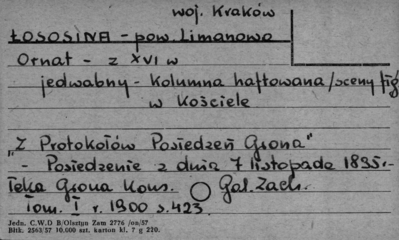 woj. Kraków
ŁOSOSINA - pow. Limanowa
Ornat - z XVI w
jedwabny - kolumna haftowana /sceny fig
w Kościele
"Z Protokołów Posiedzeń Grona"
- Posiedzenie z dnia 7 listopada 1895.-
Teka Grona Kons. Gal. Zach.
Tom. I r. 1900 s. 423
Jedn. C.W.D B/Olsztyn Zam 2776 /on/57
Bltk. 2563/57 10.000 szt. karton kl. 7 g 220.